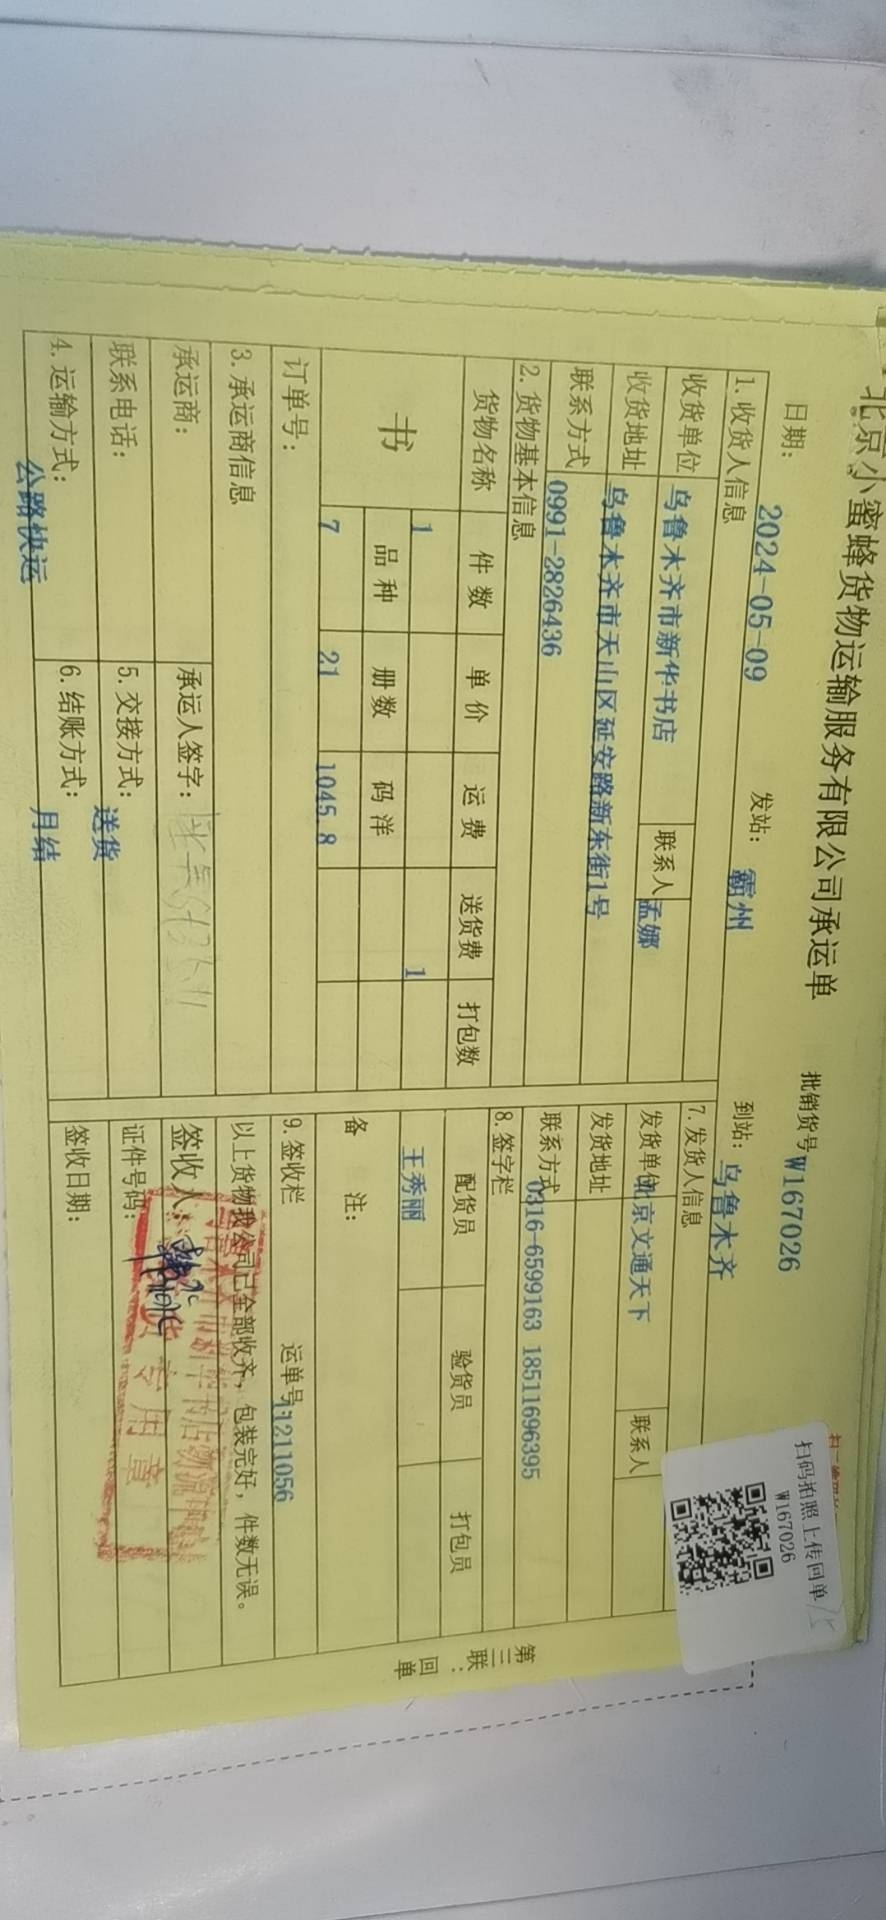 北京小蜜蜂货物运输服务有限公司承运单
批销货号W167026
日期: 2024-05-09 发站: 霸州 到站: 乌鲁木齐
扫码拍照上传回单
W167026
1.收货人信息
收货单位 乌鲁木齐市新华书店 联系人 孟娜
收货地址 乌鲁木齐市天山区延安路新东街1号
联系方式 0991-2826436
2.货物基本信息
货物名称 件数 单价 运费 送货费 打包数
书 1 1
品种 册数 码洋
7 21 1045.8
订单号:
3.承运商信息
承运商: 承运人签字:
联系电话: 5.交接方式: 送货
4.运输方式: 公路快运 6.结账方式: 月结
7.发货人信息
发货单位 北京文通天下 联系人
发货地址
联系方式 0316-6599163 18511696395
8.签字栏
配货员 验货员 打包员
王秀丽
备 注:
9.签收栏 运单号:11211056
以上货物我公司已全部收齐，包装完好，件数无误。
签收人:
证件号码:
签收日期:
专用章
第三联:回单